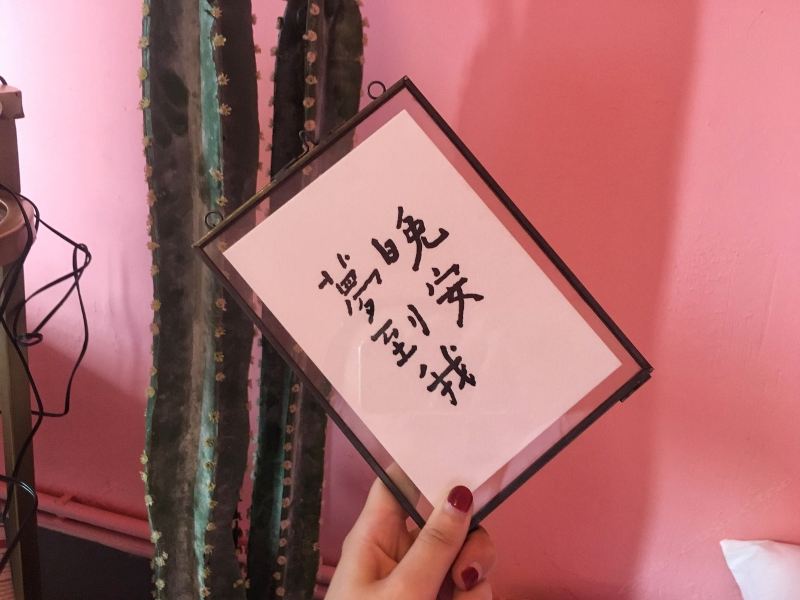 晚安
夢到我